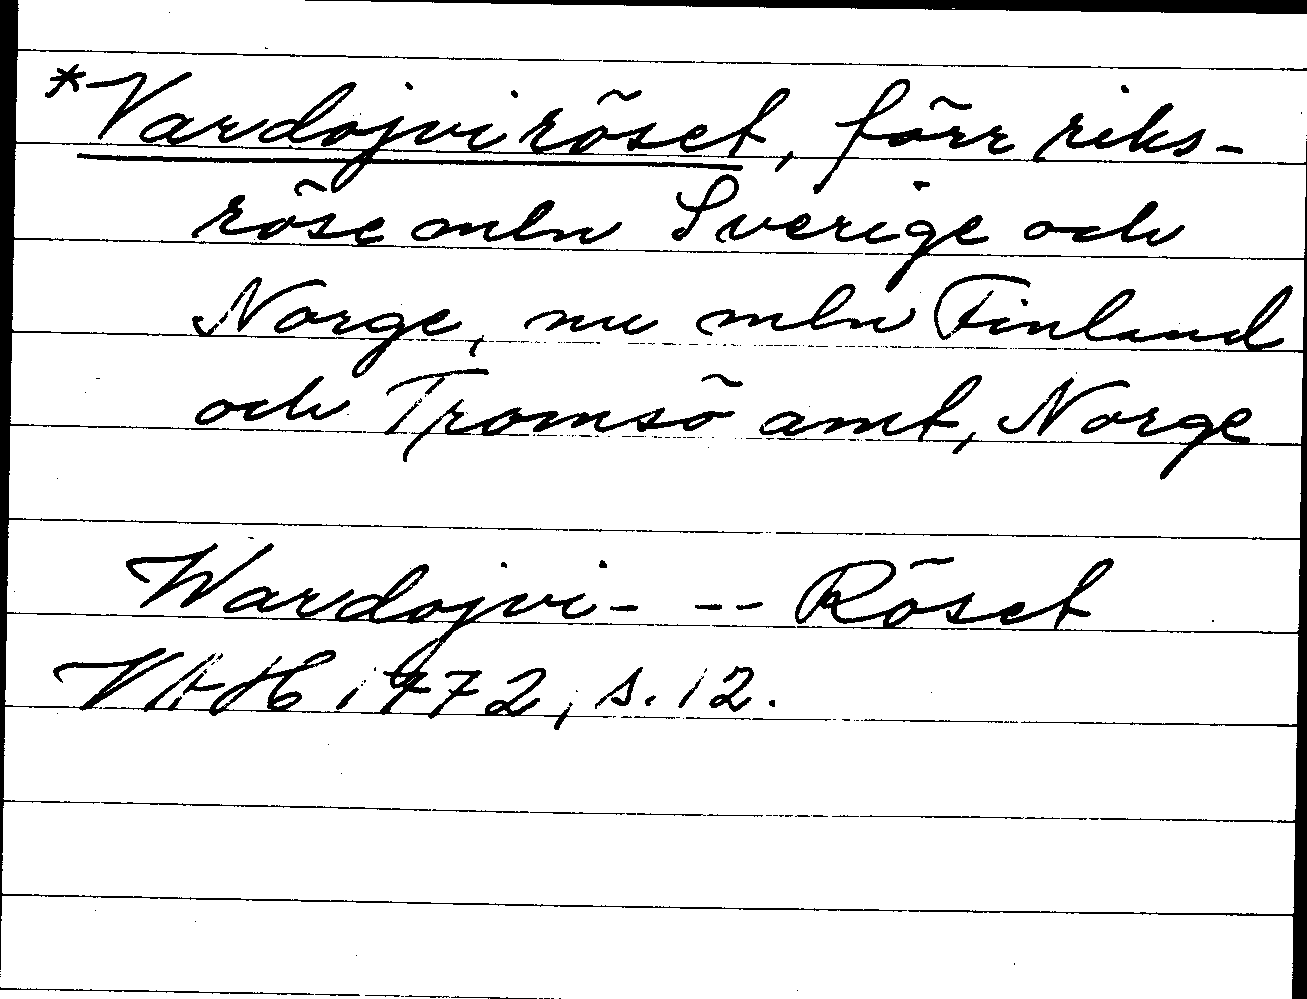 *Vardojviröset, förr riks-
röse mln Sverige och
Norge, nu mln Finland
och Tromsö amt, Norge
Wardojvi- -- Röset
VAH 1772, s. 12.